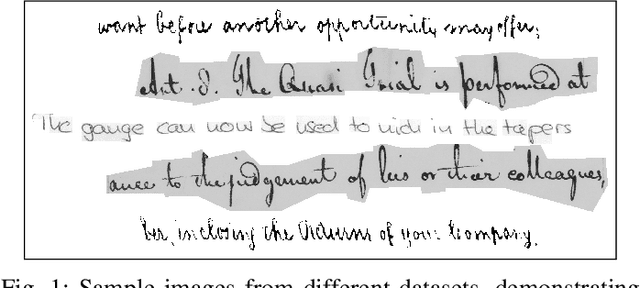 want before another opportunity may offer;
Art. 8. The Quasi Trial is performed at
The gauge can now be used to in the tapers
ance to the judgement of his or their colleagues,
ber, including the Returns of your Company.
Fig. 1: Sample images from different datasets, demonstrating